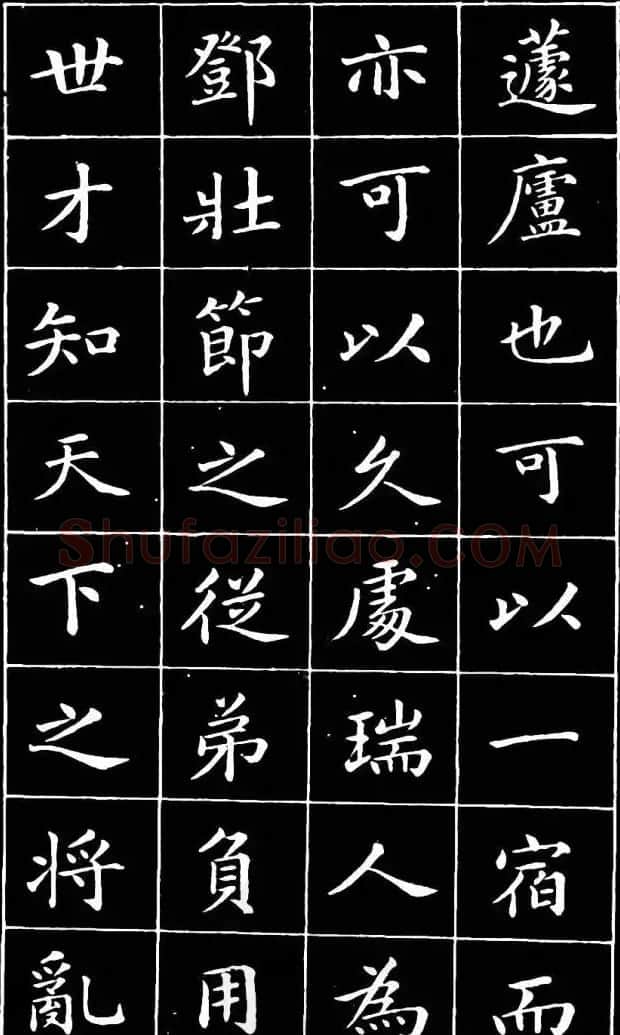 蘧廬也可以一宿而
亦可以久處瑞人為
鄧壯節之從弟負用
世才知天下之將亂
Shufaziliao.COM